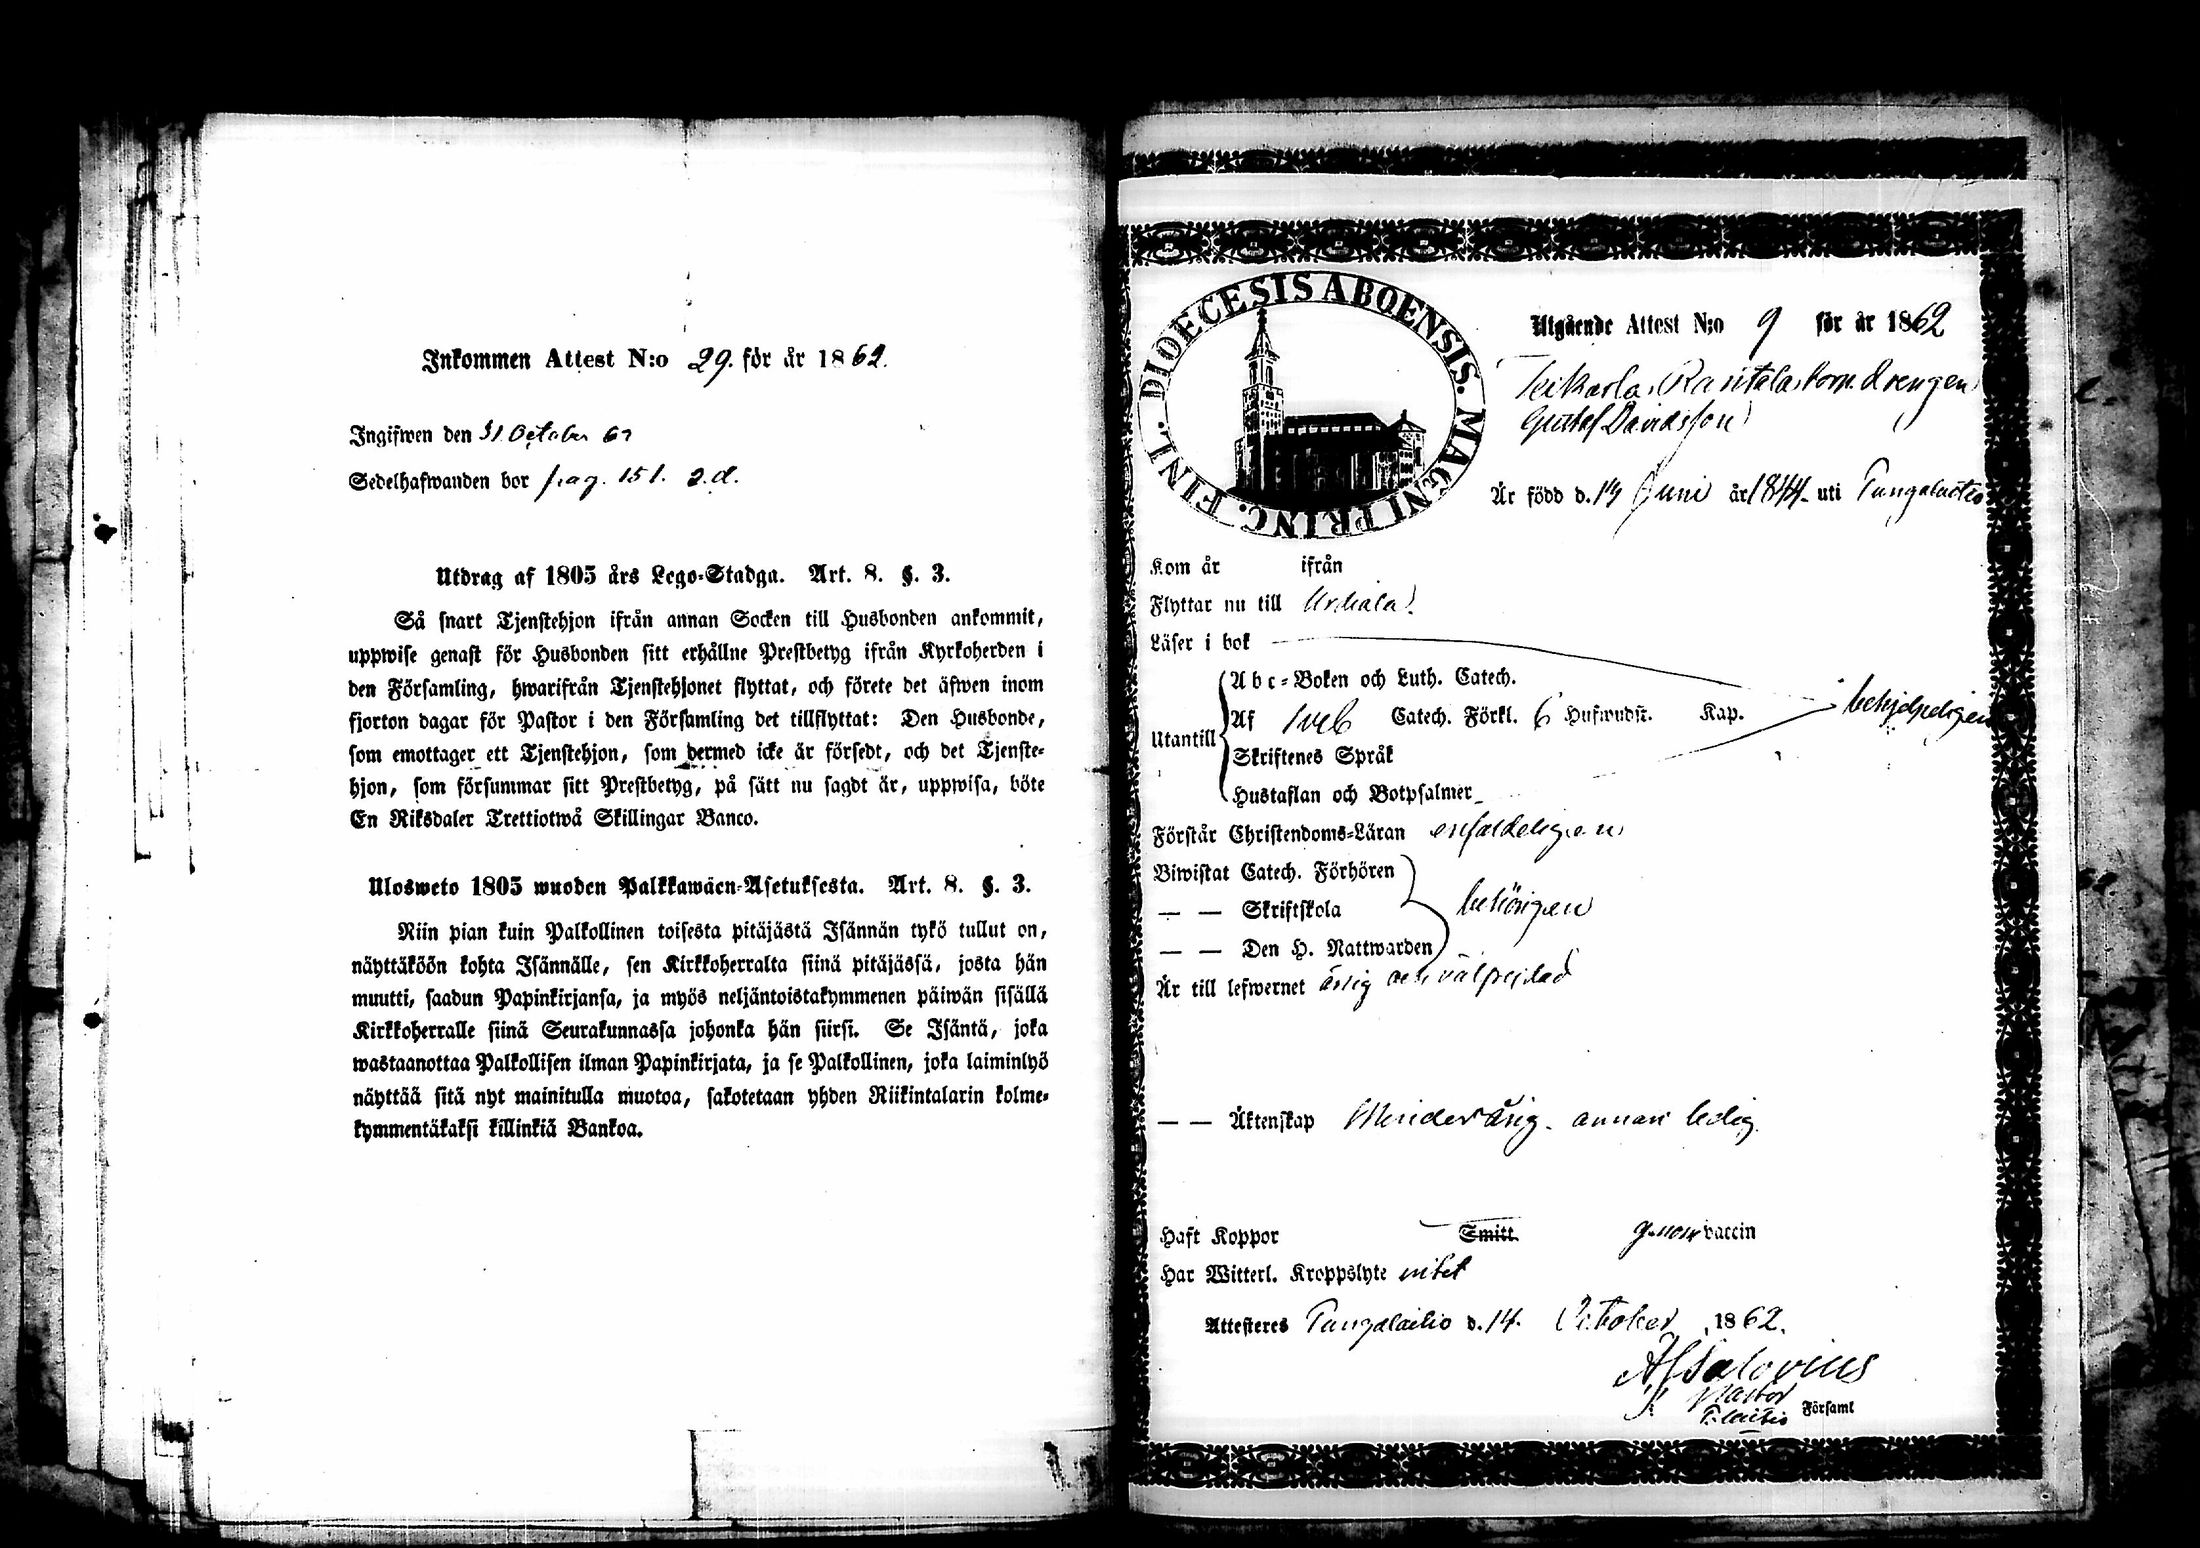 Inkommen Attest N:o 29. för år 1862.
Ingifwen den 31 October 62
Sedelhafwanden bor pag. 151. 2.d.
Utdrag af 1805 års Lego-Stadga. Art. 8. §. 3.
Så snart Tjenstehjon ifrån annan Socken till Husbonden ankommit,
uppwise genast för Husbonden sitt erhållne Prestbetyg ifrån Kyrkoherden i
den Församling, hwarifrån Tjenstehjonet flyttat, och förete det äfwen inom
fjorton dagar för Pastor i den Församling det tillflyttat: Den Husbonde,
som emottager ett Tjenstehjon, som dermed icke är försedt, och det Tjenste-
hjon, som försummar sitt Prestbetyg, på sätt nu sagdt är, uppwisa, böte
En Riksdaler Trettiotwå Skillingar Banco.
Ulosweto 1805 wuoden Palkkawäen-Asetuksesta. Art. 8. §. 3.
Niin pian kuin Palkollinen toisesta pitäjästä Isännän tykö tullut on,
näyttäköön kohta Isännälle, sen Kirkkoherralta siinä pitäjässä, josta hän
muutti, saadun Papinkirjansa, ja myös neljäntoistakymmenen päiwän sisällä
Kirkkoherralle siinä Seurakunnassa johonka hän siirsi. Se Isäntä, joka
wastaanottaa Palkollisen ilman Papinkirjata, ja se Palkollinen, joka laiminlyö
näyttää sitä nyt mainitulla muotoa, sakotetaan yhden Riikintalarin kolme-
kymmentäkaksi killinkiä Bankoa.
DIOECESIS ABOENSIS. MAGNI PRINC. FINL.
Utgående Attest N:o 9 för år 1862
Teikarla, Rantala torp. drengen
Gustaf Davidsson
Är född d. 14 Juni år 1844 uti Pungalaitio
Kom år ifrån
Flyttar nu till Urdiala.
Läser i bok
Abc-Boken och Luth. Catech.
Utantill Af Catech. Förkl. 6 Hufwudst. Kap. behjelpeligen
Skriftenes Språk
Hustaflan och Botpsalmer
Förstår Christendoms-Läran enfaldeligen
Biwistat Catech. Förhören
— — Skriftskola behörigen
— — Den H. Nattwarden
Är till lefwernet ärlig och välfrejdad
— — Äktenskap Minderårig. annars ledig.
Haft Koppor Smitt. genom vaccin
Har Witterl. Kroppslyte intet
Attesteres Pungalaitio d. 14. October 1862.
A Salovius
Pastor
P.laitio Församl